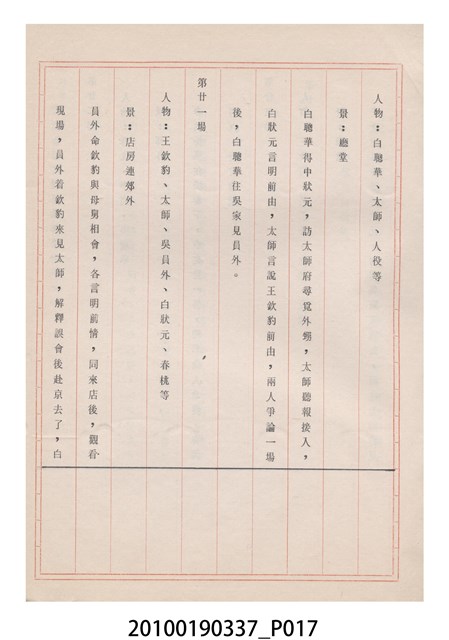 人物：白聰華、太師、人役等
景：廳堂
白聰華得中狀元，訪太師府尋覓外甥，太師聽報接入，
白狀元言明前由，太師言說王欽豹前由，兩人爭論一場
後，白聰華往吳家見員外。
第廿一場
人物：王欽豹、太師、吳員外、白狀元、春桃等
景：店房連郊外
員外命欽豹與母舅相會，各言明前情，同來店後，觀看
現場，員外着欽豹來見太師，解釋誤會後赴京去了，白
20100190337_P017